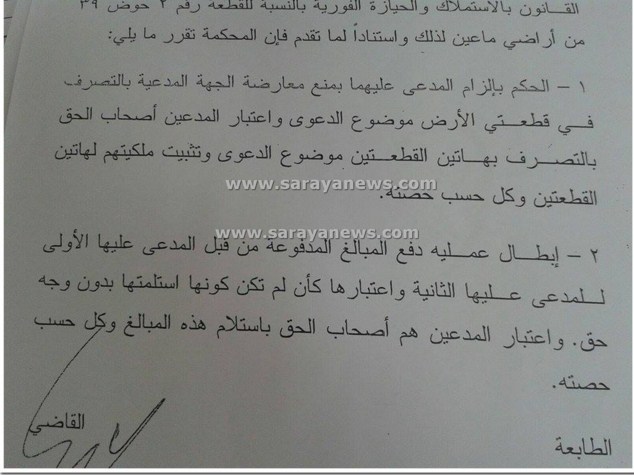 القـــانون بالاستملاك والحيازة الفورية بالنسبة للقطعة رقم ٢ حوض ٣٩
من أراضي ماعين لذلك واستناداً لما تقدم فإن المحكمة تقرر ما يلي:
١ – الحكم بإلزام المدعى عليهما بمنع معارضة الجهة المدعية بالتصرف
فـــي قطعـــتي الأرض موضوع الدعوى واعتبار المدعين أصحاب الحق
بالتصـــرف بهـــاتين القطعـــتين موضوع الدعوى وتثبيت ملكيتهم لهاتين
www.sarayanews.com
القطعتين وكل حسب حصته.
www.sarayanews.com
٢ – إبطـــال عمـــليه دفع المبالغ المدفوعة من قبل المدعى عليها الأولى
للـــمدعى عـــليها الثانية واعتبارها كأن لم تكن كونها استلمتها بدون وجه
حق. واعتبار المدعين هم أصحاب الحق باستلام هذه المبالغ وكل حسب
حصته.
القاضي
الطابعة